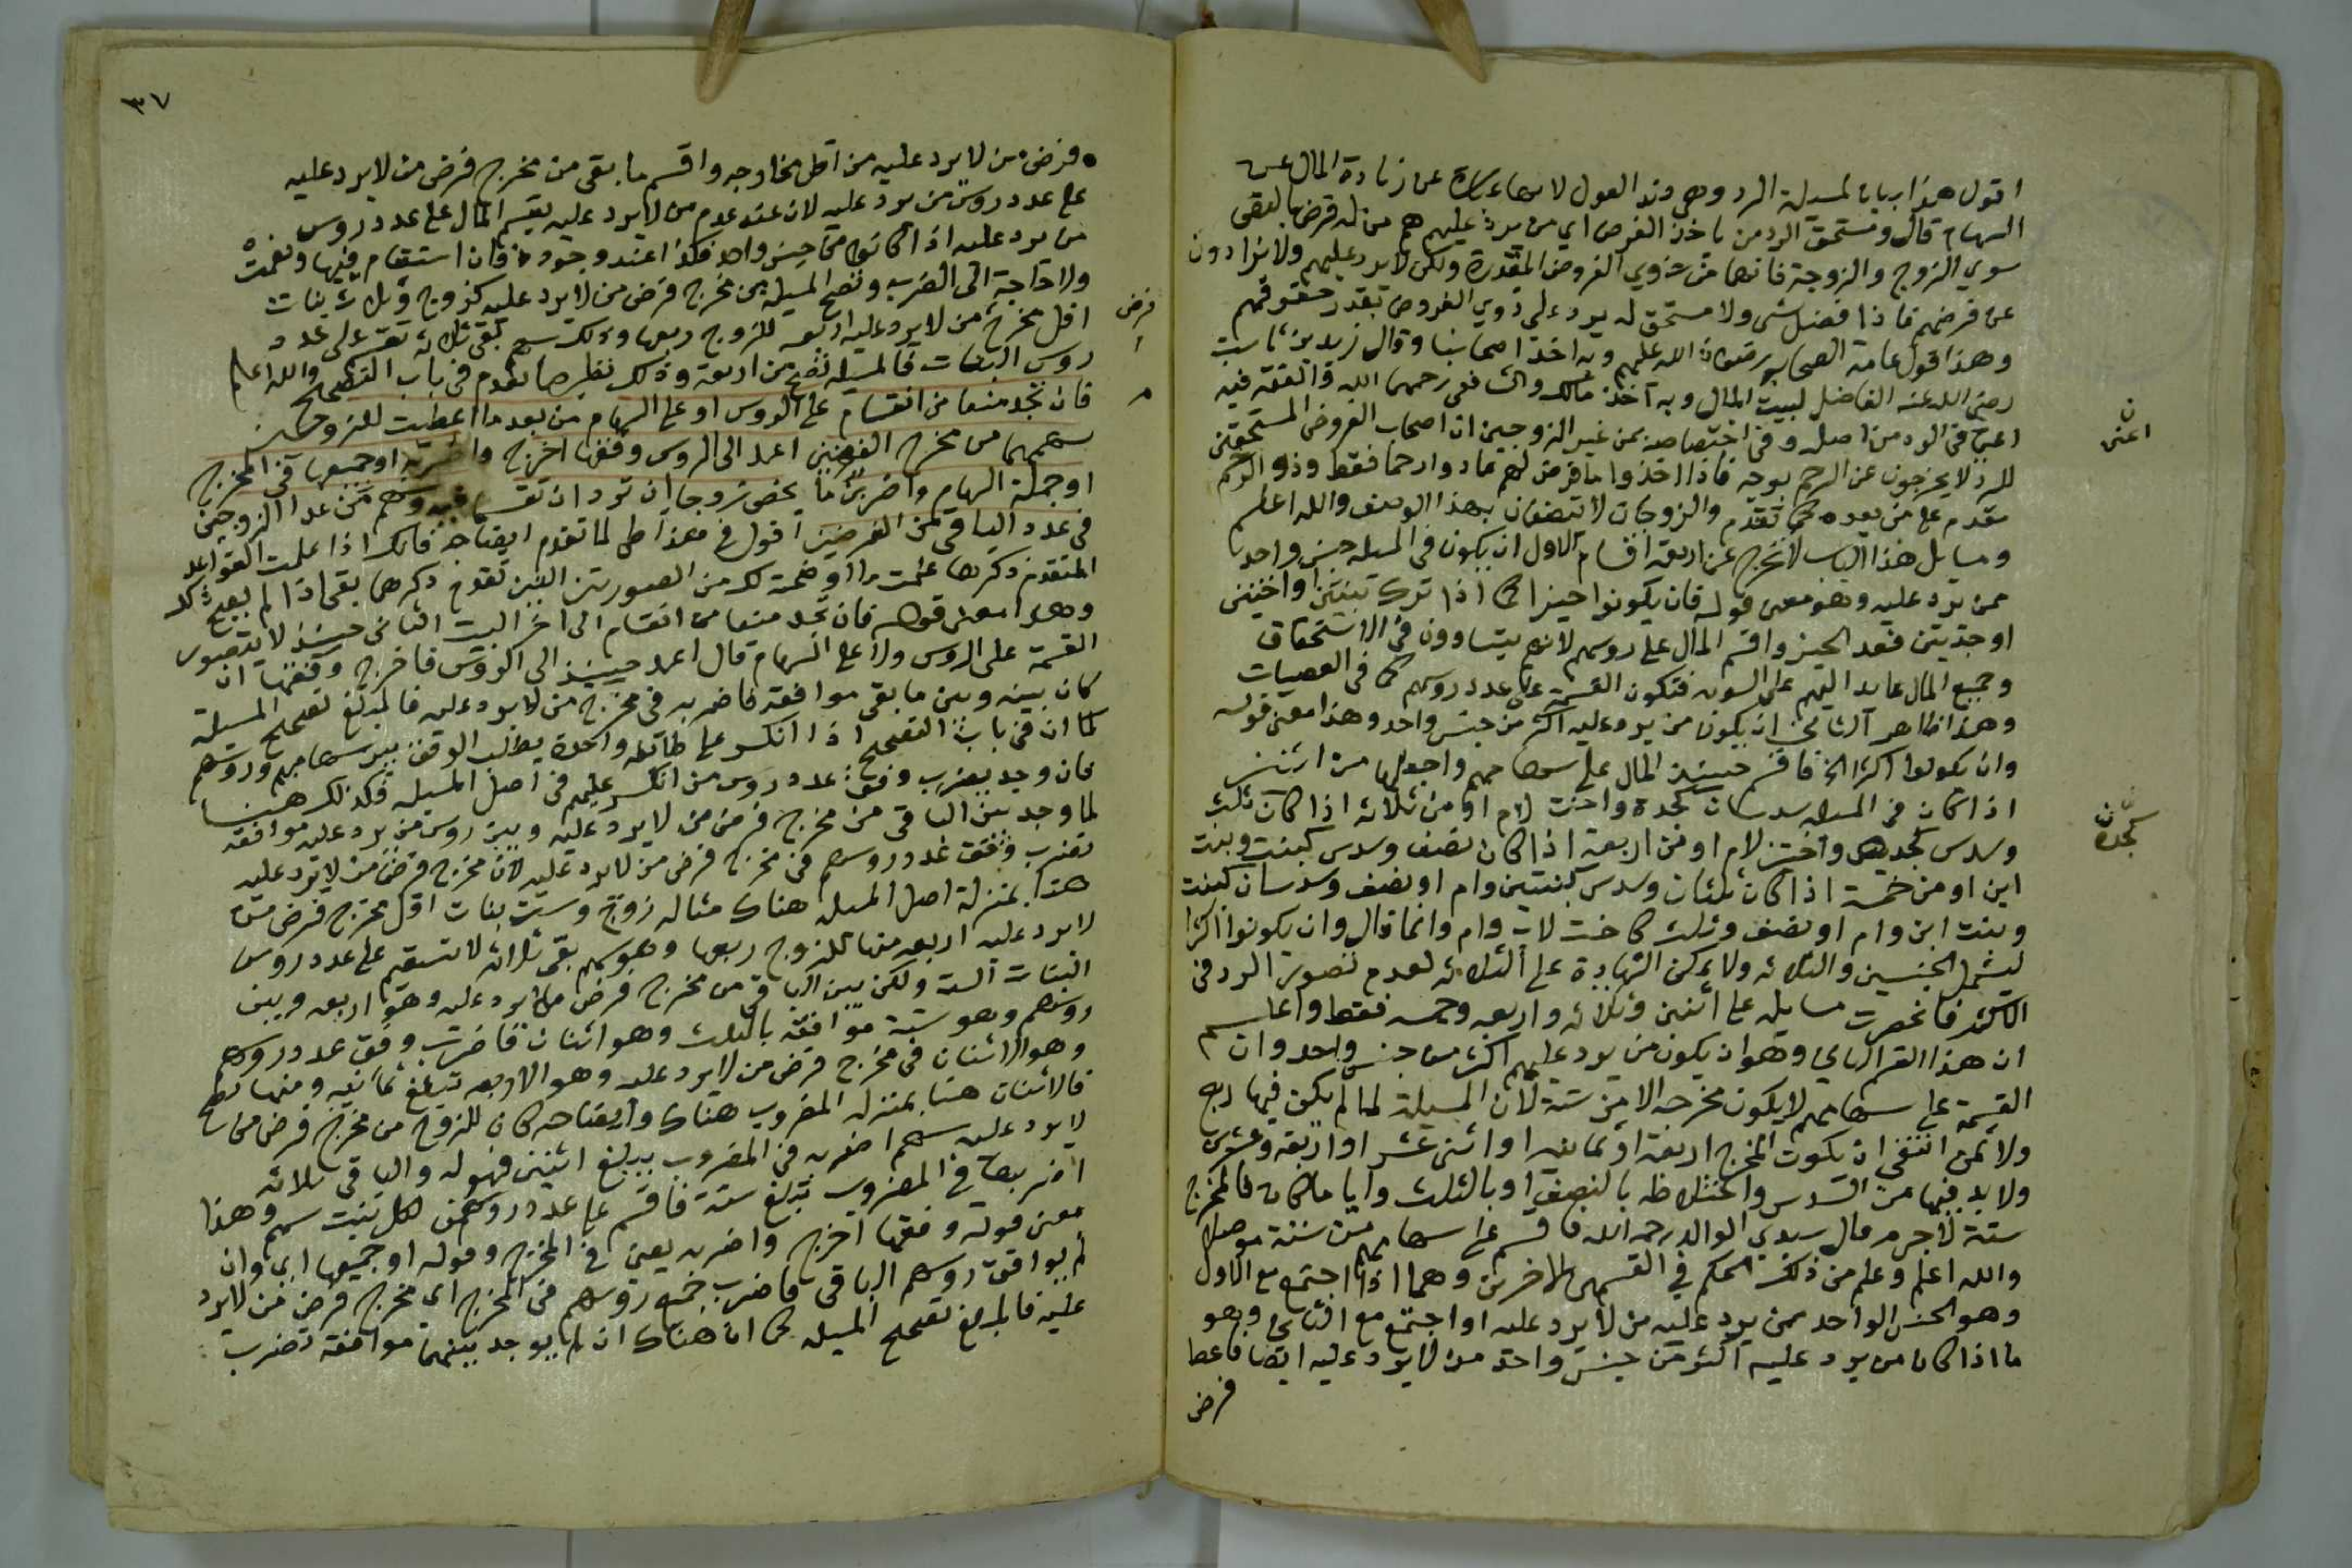 اقول هذا بيان لمسيلة الرد وهي ضد العول لانها عبارة عن زيادة المال عن
السهام قال ومستحق الرد من ياخذ الفرض اي من يرد عليهم هم من له فرض بالبقى
سوي الزوج والزوجة فانهما من ذوي الفروض المقدرة ولكن لا يرد عليهم ولا يزادون
عن فرضهم فاذا فضل شي ولا مستحق له يرد على ذوي الفروض بقدر حقوقهم
وهذا قول عامة الصحابة رضوان الله عليهم وبه اخذ اصحابنا وقال زيد بن ثابت
رضي الله عنه الفاضل لبيت المال وبه اخذ مالك والشافعي رحمهما الله والفقه فيه
اعني في الرد من اصله وفي اختصاصه بمن غير الزوجين ان اصحاب الفروض المستحقين
للرد لا يخرجون عن الرحم بوجه فاذا اخذوا ما فرض لهم عادوا رحما فقط وذو الرحم
مقدم على من بعده كما تقدم والزوجات لا تتصفان بهذا الوصف والله اعلم
ومسايل هذا الباب لا تخرج عن اربعة اقسام الاول ان يكون في المسيلة جنس واحد
ممن يرد عليه وهو معنى قوله فان يكونوا حيزا كما اذا ترك بنتين او اختين
او جدتين فعد الحيز واقسم المال على روسهم لانهم يتساوون في الاستحقاق
وجميع المال عايد اليهم على السوية فتكون القسمة على عدد روسهم كما في العصبات
وهذا ظاهر الثاني ان يكون من يرد عليه اكثر من جنس واحد وهذا معنى قوله
وان يكونوا اكثر الخ فاقسم حينيذ المال على سهامهم واجعلها من اثنين
اذا كان في المسيلة سدسان كجدة واخت لام او من ثلاثة اذا كان ثلث
وسدس كجدة واختين لام او من اربعة اذا كان نصف وسدس كبنت وبنت
ابن او من خمسة اذا كان ثلثان وسدس كبنتين وام او نصف وسدسان كبنت
وبنت ابن وام او نصف وثلث كاخت لاب وام وانما قال وان يكونوا اكثرا
ليشمل الجنسين والثلاثة ولا يمكن الزيادة على الثلاثة لعدم تصور الرد في
الاكثر فانحصرت مسايله على اثنين وثلاثة واربعة وخمسة فقط واعلم
ان هذا القسم الثاني وهو ان يكون من يرد عليهم اكثر من جنس واحد وان
القسمة على سهامهم لا يكون مخرجه الا من ستة لان المسيلة لما لم يكن فيها ربع
ولا ثمن انتفى ان يكون المخرج اربعة او ثمانية او اثنى عشر او اربعة وعشرين
ولا بد فيها من السدس واختلاطه بالنصف او بالثلث وايا ما كان فالمخرج
ستة لا جرم قال سيدي الوالد رحمه الله فاقسم على سهامهم من ستة موصلا
والله اعلم وعلم من ذلك الحكم في القسمين الاخرين وهما اذا اجتمع مع الاول
وهو الجنس الواحد ممن يرد عليه من لا يرد عليه او اجتمع مع الثاني وهو
ما اذا كان من يرد عليه اكثر من جنس واحد من لا يرد عليه ايضا فاعط
فرض
اعني
كجدة
٣٧
فرض من لا يرد عليه من اقل مخارجه واقسم ما بقى من مخرج فرض من لا يرد عليه
على عدد روس من يرد عليه لان عند عدم من لا يرد عليه يقسم المال على عدد روس
من يرد عليه اذا كانوا من جنس واحد فكذا عند وجوده فان استقام فبها ونعمت
ولا حاجة الى الضرب وتصح المسيلة من مخرج فرض من لا يرد عليه كزوج وثلاث بنات
اقل مخرج من لا يرد عليه اربعة للزوج ربعها وذلك سهم بقى ثلاثة تقسم على عدد
روس البنات فالمسيلة تصح من اربعة وذلك نظير ما تقدم في باب التصحيح والله اعلم
فان تجد منعا من انقسام على الروس او على السهام من بعد ما اعطيت للزوجين
سهمهما من مخرج الفرضين اعمد الى الروس وفقها اخرج واضربه او جميعها في المخرج
او جملة السهام واضربن ما يخص زوجا ان ترد ان تقسما فيه وسهم من عدا الزوجين
في عدد الباقي من الفرضين اقول في هذا على لما تقدم ايضاحه فانك اذا علمت القواعد
المتقدم ذكرها علمت ما اوضحته لك من الصورتين اللتين تقدم ذكرهما بقى اذا لم يصح ذلك
وهذا معنى قوله فان تجد منعا من انقسام الى اخر البيت الثاني حينيذ لا يتصور
القسمة على الروس ولا على السهام قال اعمد حينيذ الى الروس فاخرج وفقها ان
كان بينه وبين ما بقى موافقة فاضربه في مخرج من لا يرد عليه فالمبلغ تصحيح المسيلة
كما ان في باب التصحيح اذا انكسر على طائفة واحدة يطلب الوفق بين سهامهم وروسهم
فان وجد يضرب وفق عدد روس من انكسر عليهم في اصل المسيلة فكذلك هنا
لما وجد بين الباقي من مخرج فرض من لا يرد عليه وبين روس من يرد عليه موافقة
تضرب وفق عدد روسهم في مخرج فرض من لا يرد عليه لان مخرج فرض من لا يرد عليه
هنا بمنزلة اصل المسيلة هناك مثاله زوج وست بنات اقل مخرج فرض من
لا يرد عليه اربعة منها للزوج ربعها وهو سهم بقى ثلاثة لا تستقيم على عدد روس
البنات الستة ولكن بين الباقي من مخرج فرض من لا يرد عليه وهو اربعة وبين
روسهم وهو ستة موافقة بالثلث وهو اثنان فاضرب وفق عدد روسهم
وهو الاثنان في مخرج فرض من لا يرد عليه وهو الاربعة تبلغ ثمانية ومنها تصح
فالاثنان هنا بمنزلة المضروب هناك وايضاحه كان للزوج من مخرج فرض من
لا يرد عليه سهم اضربه في المضروب يبلغ اثنين فهو له والباقي ثلاثة
اضربها في المضروب تبلغ ستة فاقسم على عدد روسهن لكل بنت سهم وهذا
معنى قوله وفقها اخرج واضربه يعني في المخرج وقوله او جميعها اي وان
لم يوافق روسهم الباقي فاضرب جميع روسهم في المخرج اي مخرج فرض من لا يرد
عليه فالمبلغ تصحيح المسيلة كما ان هناك ان لم يوجد بينهما موافقة تضرب
فرض